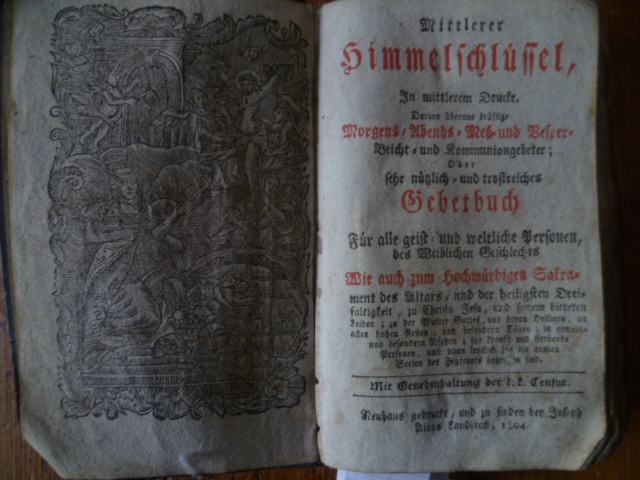 Mittlerer
Himmelschlüssel,
In mittlerem Drucke.
Darinn überaus kräftige
Morgens- Abends- Meß- und Vesper-
Beicht- und Kommuniongebeter;
Oder
sehr nützlich- und trostreiches
Gebetbuch
Für alle geist- und weltliche Personen,
des Weiblichen Geschlechts
Wie auch zum Hochwürdigen Sakra-
ment des Altars, und der heiligsten Drei-
faltigkeit, zu Christo Jesu, und seinem bitteren
Leiden; zu der Mutter Gottes, und denen Heiligen, an
allen hohen Festen, und besondern Tägen; in
und besondern Nöthen; für kranke und sterbende
Personen, und dann für die armen
Seelen des Fegfeuers sind.
Mit Genehmhaltung der k. k. Censur.
Neuhaus gedruckt, und zu finden bey Joseph
Aloys Landfraß, 1804